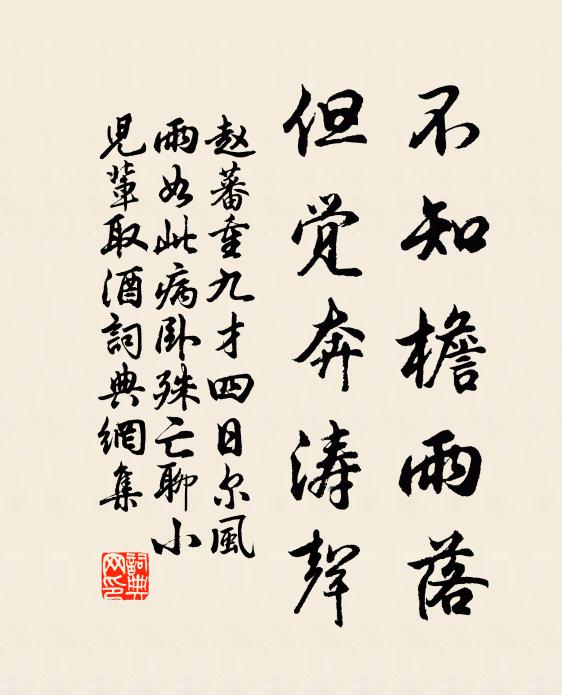 不知檐雨落
但觉奔涛聲
赵蕃重九才四日尔風
雨如此病卧殊亡聊小
児輩取酒詞典網集
詞典网印